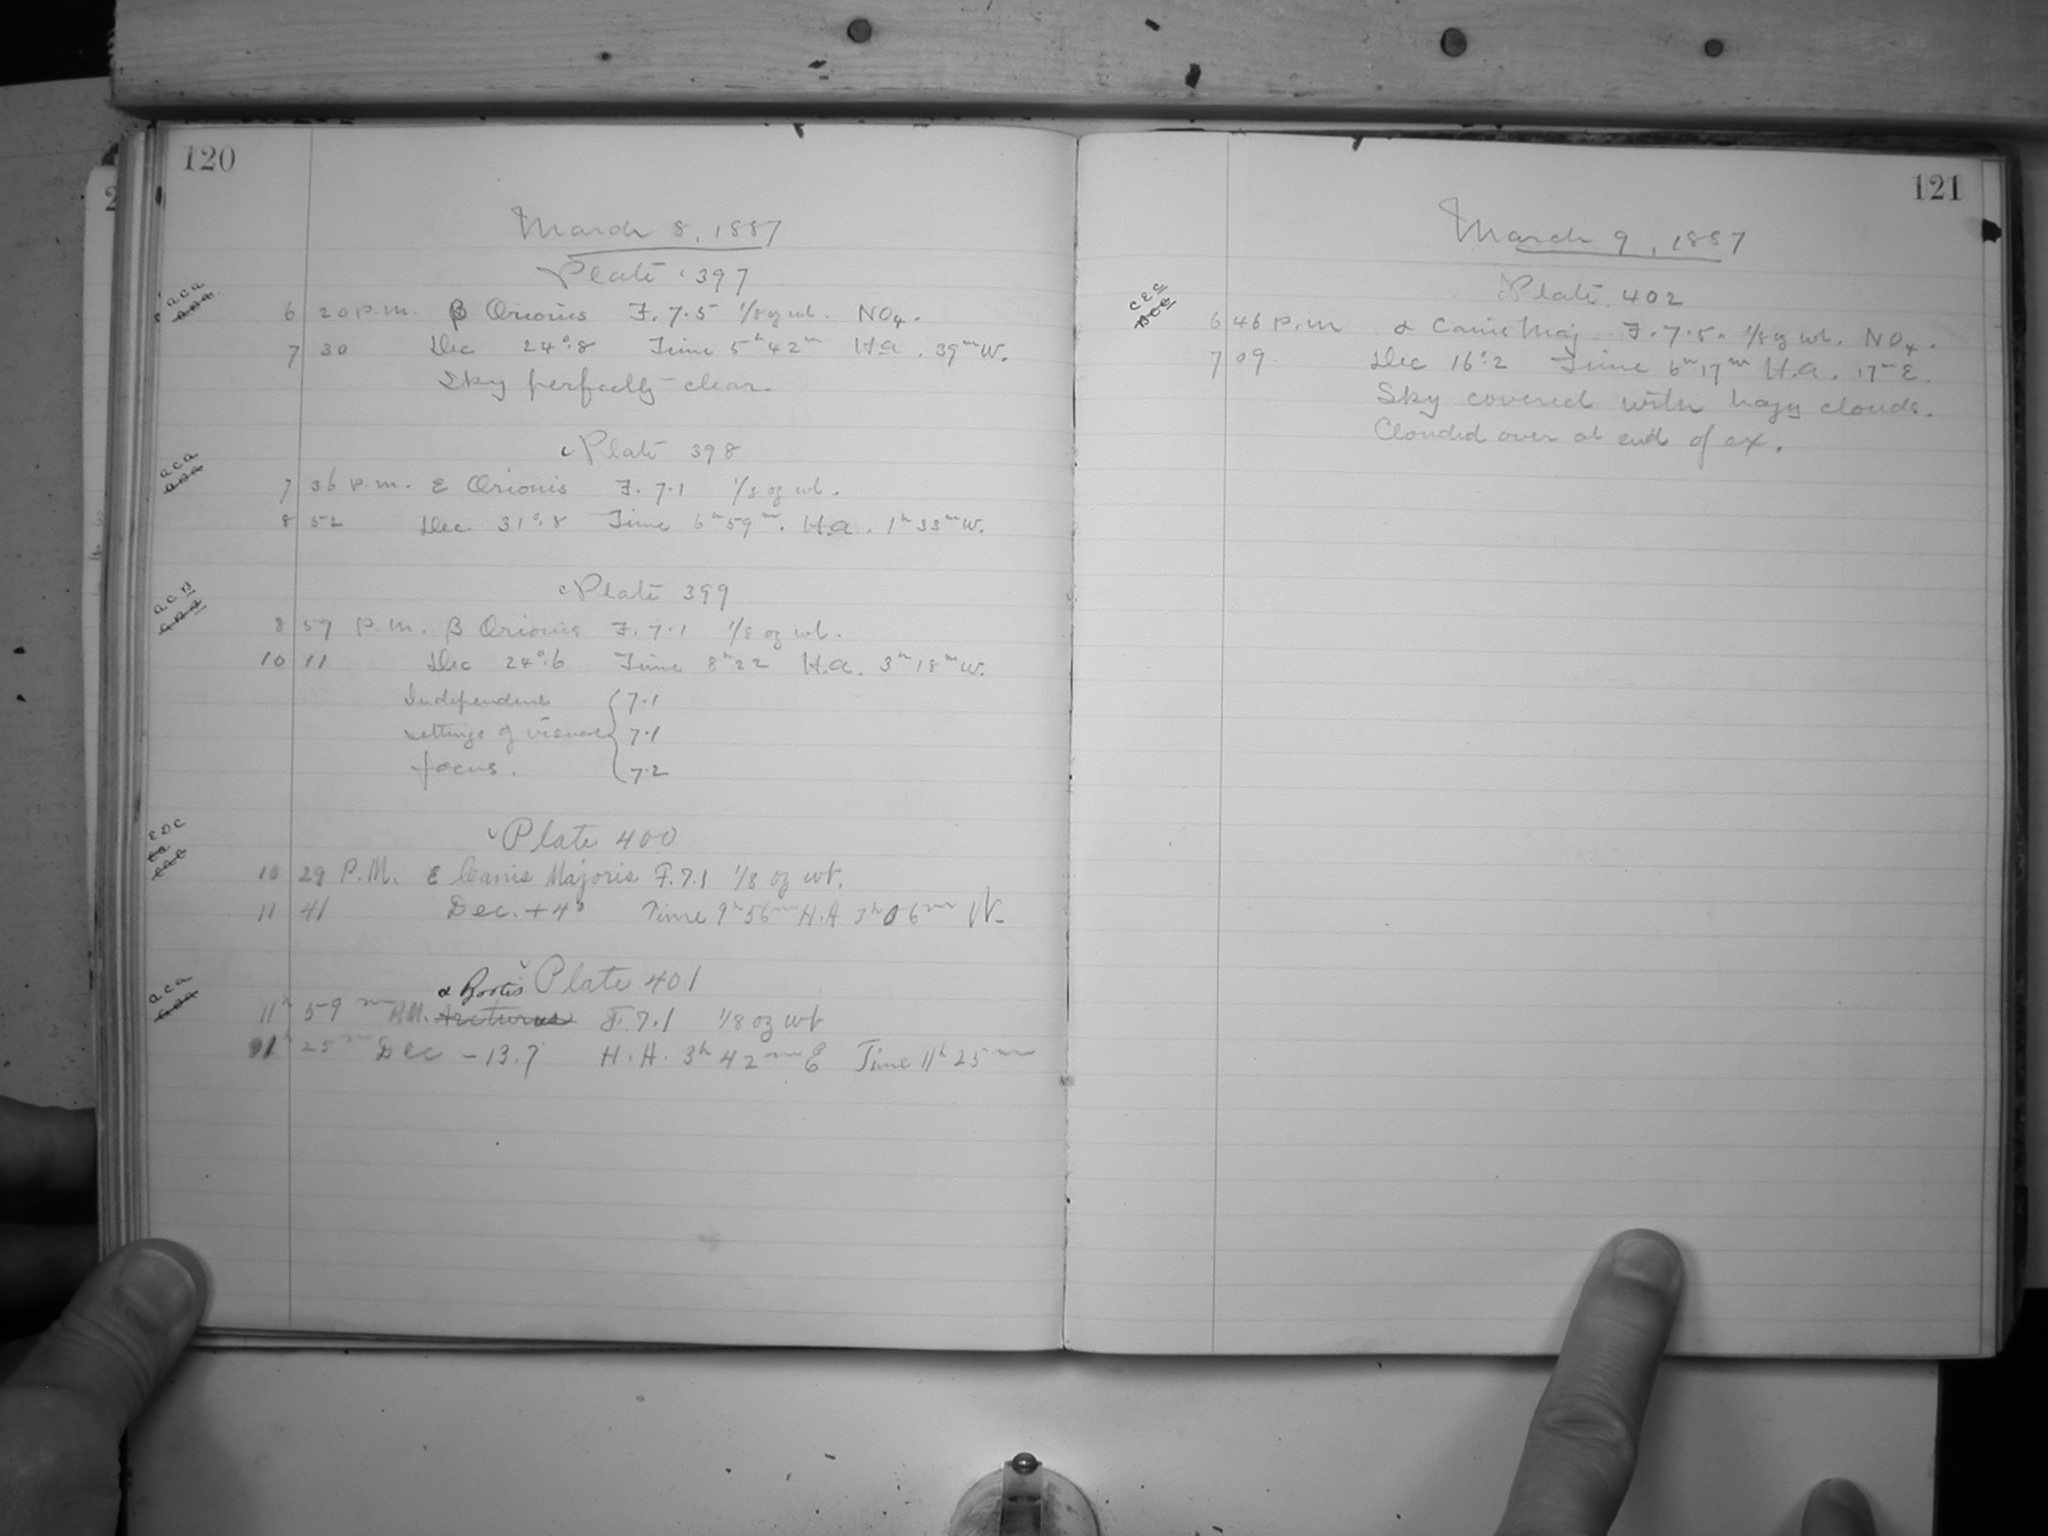 120
March 8, 1887
Plate 397
aca
6 20 P.M. β Orionis F. 7.5 1/8 oz wt. NO4.
7 30 Dec 24°.8 Time 5h 42m H.a. 39m W.
Sky perfectly clear.
Plate 398
aca
7 36 P.M. ε Orionis F. 7.1 1/8 oz wt.
8 52 Dec. 31°.8 Time 6h 59m. H.a. 1h 33m W.
Plate 399
aca
8 59 P.M. β Orionis F. 7.1 1/8 oz wt.
10 11 Dec 24°.6 Time 8h 22 H.a. 3h 18m W.
Independent 7.1
settings of visual 7.1
focus. 7.2
Plate 400
10 29 P.M. ε Canis Majoris F. 7.1 1/8 oz wt.
11 41 Dec. +4° Time 9h 56m H.A 3h 06m W.
α Bootis Plate 401
aca
11h 59m P.M. Arcturus F. 7.1 1/8 oz wt
25m Dec -13.7 H.A. 3h 42m E Time 11h 25m
121
March 9, 1887
Plate 402
CEC
6 46 P.M α Canis Maj. F. 7.5. 1/8 oz wt. NO4.
7 09 Dec 16°.2 Time 6h 17m H.a. 17m E.
Sky covered with hazy clouds.
Clouded over at end of ex.